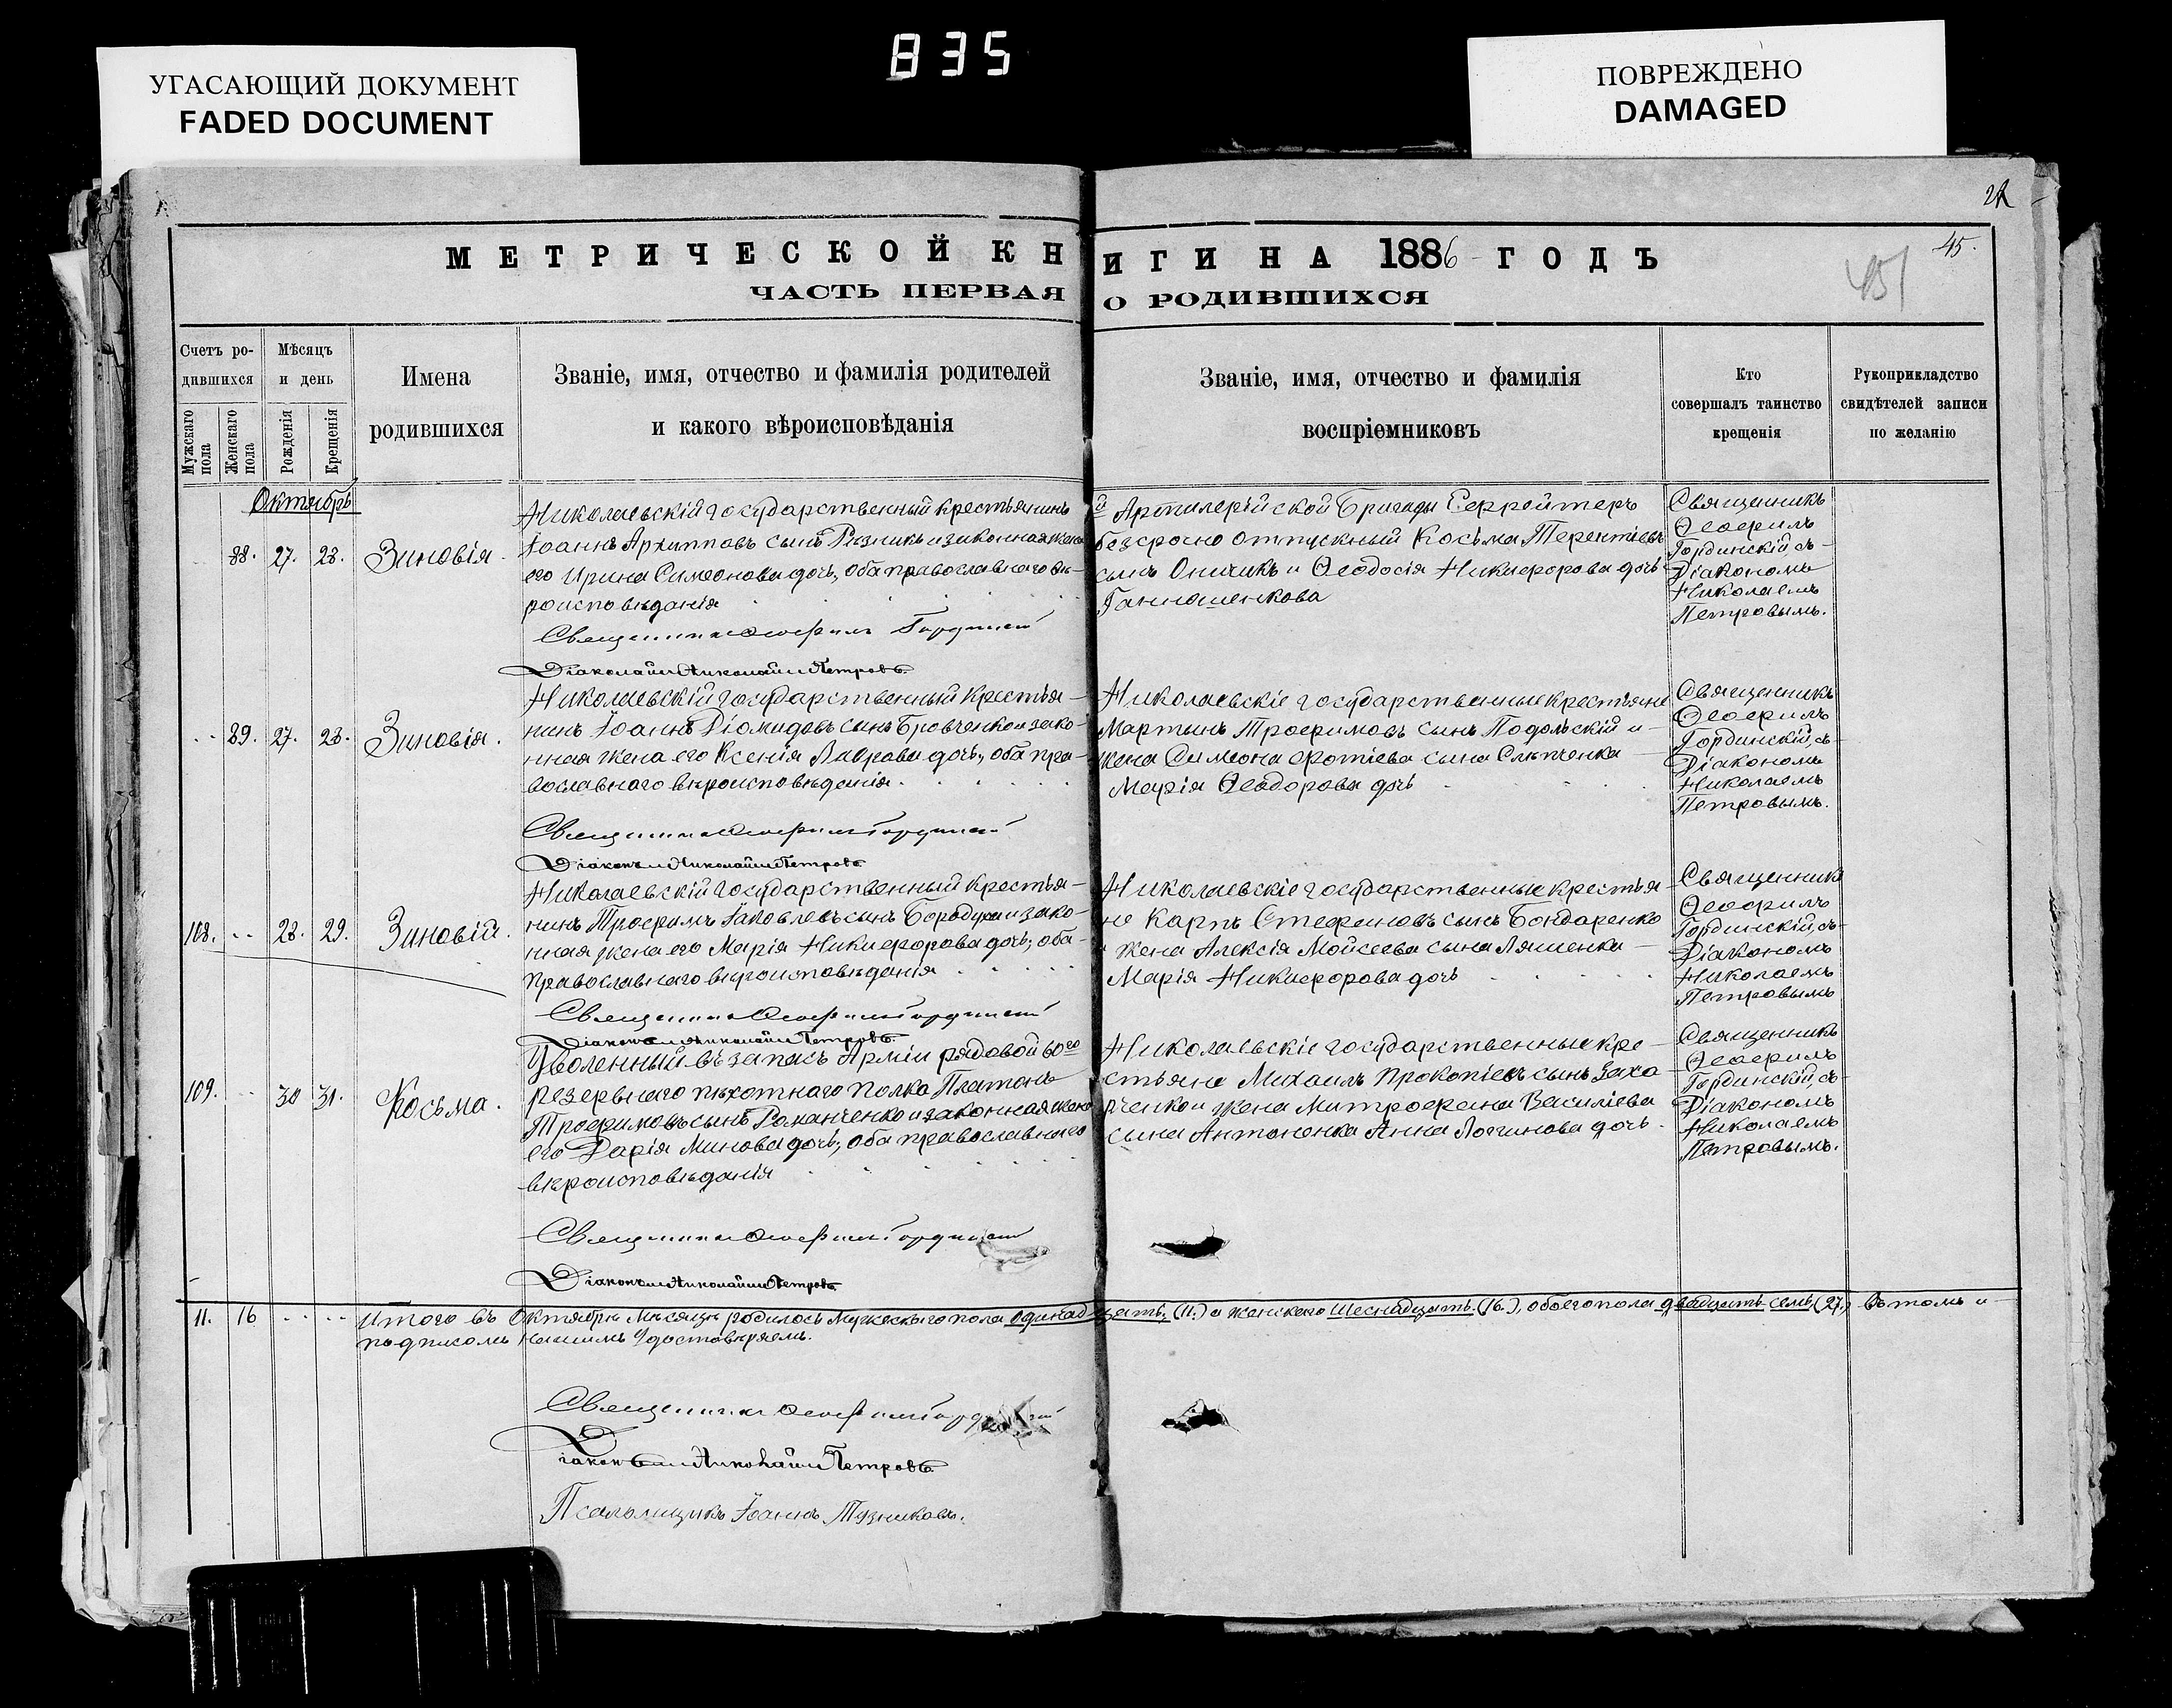 835
УГАСАЮЩИЙ ДОКУМЕНТ
FADED DOCUMENT
ПОВРЕЖДЕНО
DAMAGED
45.
МЕТРИЧЕСКОЙ КНИГИ НА 1886 ГОДЪ
ЧАСТЬ ПЕРВАЯ О РОДИВШИХСЯ
Счетъ ро-
дившихся
Мужскаго пола
Женскаго пола
Мѣсяцъ
и день
Рожденія
Крещенія
Имена
родившихся
Званіе, имя, отчество и фамилія родителей
и какого вѣроисповѣданія
Званіе, имя, отчество и фамилія
воспріемниковъ
Кто
совершалъ таинство
крещенія
Рукоприкладство
свидѣтелей записи
по желанію
Октябрь
88. 27. 28. Зиновія.
Николаевскій государственный крестьянинъ
Іоаннъ Архипповъ сынъ Рѣзникъ и законная жена
его Ирина Симеонова дочь, оба православнаго вѣ-
роисповѣданія
Священникъ Ѳеофилъ Гординскій
Діаконъ Николай Петровъ
й Артилерійской Бригады Ефрейтеръ
безсрочно отпускный Косьма Терентіевъ
сынъ Оничикъ и Ѳеодосія Никифорова дочь
Ганношенкова
Священникъ
Ѳеофилъ
Гординскій съ
Діакономъ
Николаемъ
Петровымъ.
89. 27. 28. Зиновія.
Николаевскій государственный крестья-
нинъ Іоаннъ Діомидовъ сынъ Бровченко и зако-
нная жена его Ксенія Лаврова дочь, оба пра-
вославнаго вѣроисповѣданія.
Священникъ Ѳеофилъ Гординскій
Діаконъ Николай Петровъ
Николаевскіе государственные крестьяне
Мартынъ Трофимовъ сынъ Подольскій и
жена Симеона Фотіева сына Слѣпченка
Марія Ѳеодорова дочь
Священникъ
Ѳеофилъ
Гординскій, съ
Діакономъ
Николаемъ
Петровымъ.
108. 28. 29. Зиновій.
Николаевскій государственный крестья-
нинъ Трофимъ Іаковлевъ сынъ Бородуха и зако-
нная жена его Марія Никифорова дочь, оба
православнаго вѣроисповѣданія
Священникъ Ѳеофилъ Гординскій
Діаконъ Николай Петровъ
Николаевскіе государственные крестья-
не Карпъ Стефановъ сынъ Бондаренко
и жена Алексія Мойсеева сына Ляшенка
Марія Никифорова дочь
Священникъ
Ѳеофилъ
Гординскій, съ
Діакономъ
Николаемъ
Петровымъ
109. 30 31. Косьма.
Уволенный въ запасъ Арміи рядовой 60го
резервнаго пѣхотнаго полка Платонъ
Трофимовъ сынъ Романченко и законная жена
его Дарія Минова дочь, оба православнаго
вѣроисповѣданія
Священникъ Ѳеофилъ Гординскій
Діаконъ Николай Петровъ
Николаевскіе государственные кре-
стьяне Михаилъ Прокопіевъ сынъ Заха-
рченко и жена Митрофана Василіева
сына Антоненка Анна Логгинова дочь.
Священникъ
Ѳеофилъ
Гординскій, съ
Діакономъ
Николаемъ
Петровымъ.
11. 16 Итого въ Октябрѣ мѣсяцѣ родилось мужескаго пола одинадцать, (11.) а женскаго шеснадцать. (16.), обоего пола двадцать семь, (27.) въ томъ и
подписомъ нашимъ удостовѣряемъ.
Священникъ Ѳеофилъ Гординскій
Діаконъ Николай Петровъ
Псаломщикъ Іоаннъ